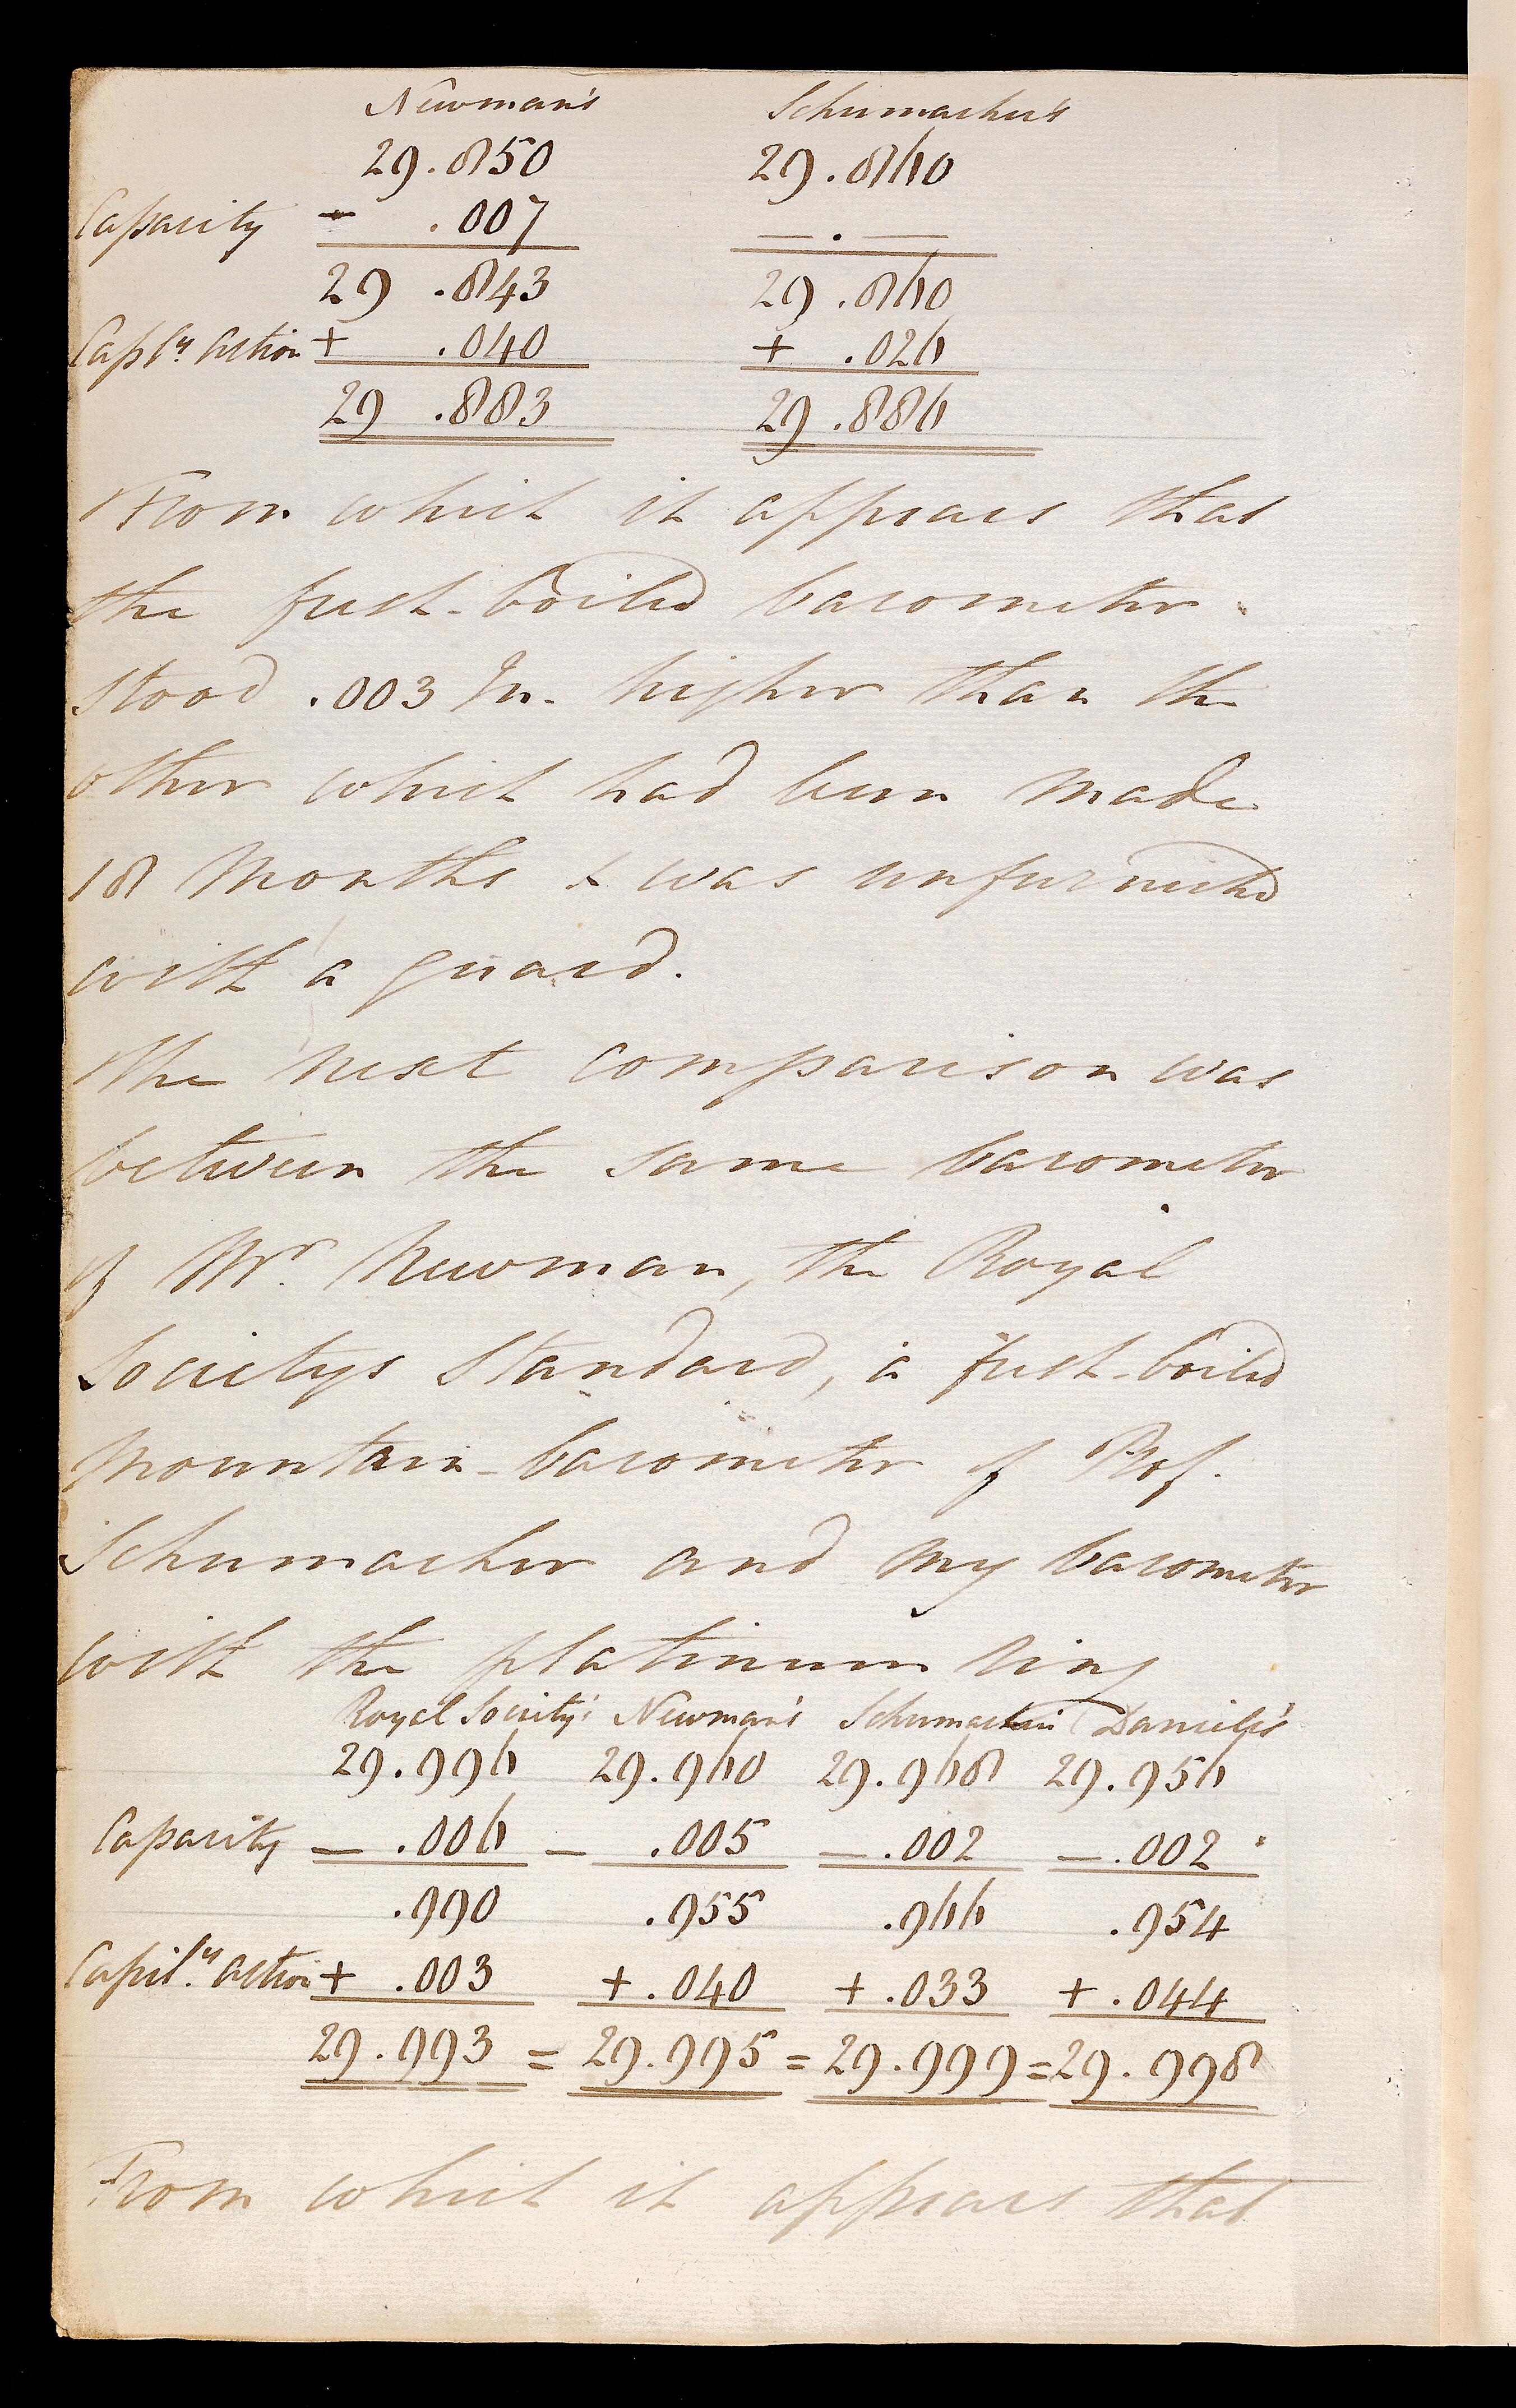 Newman's Schumacher's
29.850 29.860
Capacity - .007 — . —
29 .843 29.860
Caply. action + .040 + .026
29 .883 29.886
From which it appears that
the fresh-boiled barometer
stood .003 In. higher than the
other which had been made
18 Months & was unfurnished
with a guard.
The next comparison was
between the same barometer
of Mr. Newman, the Royal
Societys Standard, a fresh-boiled
mountain-barometer of Prof.
Schumacher and my barometer
with the platinum ring
Royal Society's Newman's Schumacher's Daniell's
29.996 29.960 29.968 29.956
Capacity — .006 — .005 — .002 — .002
.990 .955 .966 .954
Capily. action + .003 + .040 + .033 + .044
29.993 = 29.995 = 29.999 = 29.998
From which it appears that